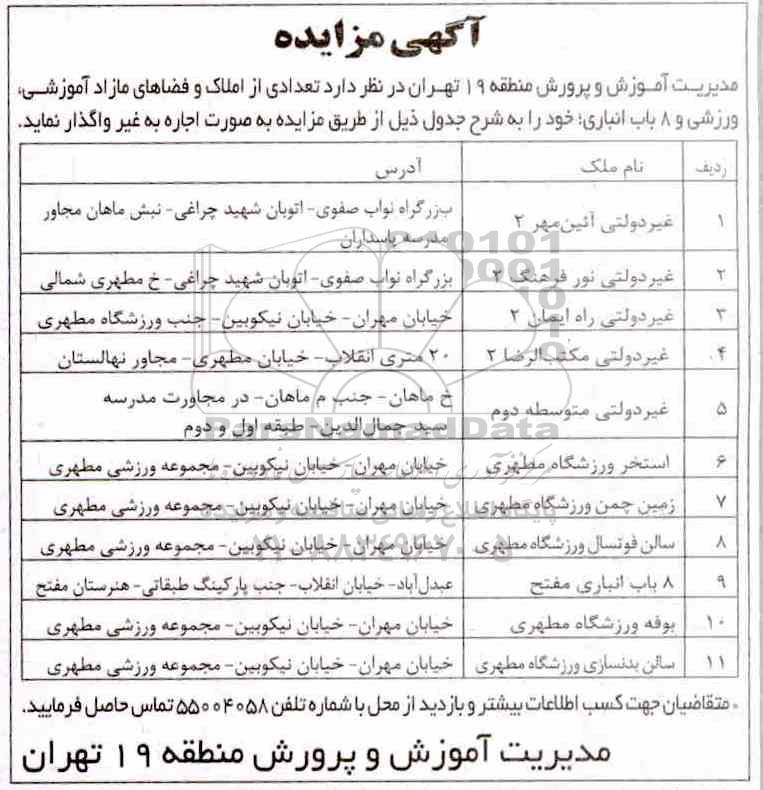 آگهی مزایده
مدیریت آموزش و پرورش منطقه ۱۹ تهران در نظر دارد تعدادی از املاک و فضاهای مازاد آموزشی،
ورزشی و ۸ باب انباری؛ خود را به شرح جدول ذیل از طریق مزایده به صورت اجاره به غیر واگذار نماید.
ردیف نام ملک آدرس
۱ غیردولتی آئین‌مهر ۲ بزرگراه نواب صفوی- اتوبان شهید چراغی- نبش ماهان مجاور
مدرسه پاسداران
۲ غیردولتی نور فرهنگ ۲ بزرگراه نواب صفوی- اتوبان شهید چراغی- خ مطهری شمالی
۳ غیردولتی راه ایمان ۲ خیابان مهران- خیابان نیکوبین- جنب ورزشگاه مطهری
۴ غیردولتی مکتب‌الرضا ۲ ۲۰ متری انقلاب- خیابان مطهری- مجاور نهالستان
۵ غیردولتی متوسطه دوم خ ماهان- جنب م ماهان- در مجاورت مدرسه
سید جمال‌الدین- طبقه اول و دوم
۶ استخر ورزشگاه مطهری خیابان مهران- خیابان نیکوبین- مجموعه ورزشی مطهری
۷ زمین چمن ورزشگاه مطهری خیابان مهران- خیابان نیکوبین- مجموعه ورزشی مطهری
۸ سالن فوتسال ورزشگاه مطهری خیابان مهران- خیابان نیکوبین- مجموعه ورزشی مطهری
۹ ۸ باب انباری مفتح عبدل‌آباد- خیابان انقلاب- جنب پارکینگ طبقاتی- هنرستان مفتح
۱۰ بوفه ورزشگاه مطهری خیابان مهران- خیابان نیکوبین- مجموعه ورزشی مطهری
۱۱ سالن بدنسازی ورزشگاه مطهری خیابان مهران- خیابان نیکوبین- مجموعه ورزشی مطهری
• متقاضیان جهت کسب اطلاعات بیشتر و بازدید از محل با شماره تلفن ۵۵۰۰۴۰۵۸ تماس حاصل فرمایید.
مدیریت آموزش و پرورش منطقه ۱۹ تهران
ParsNamadData